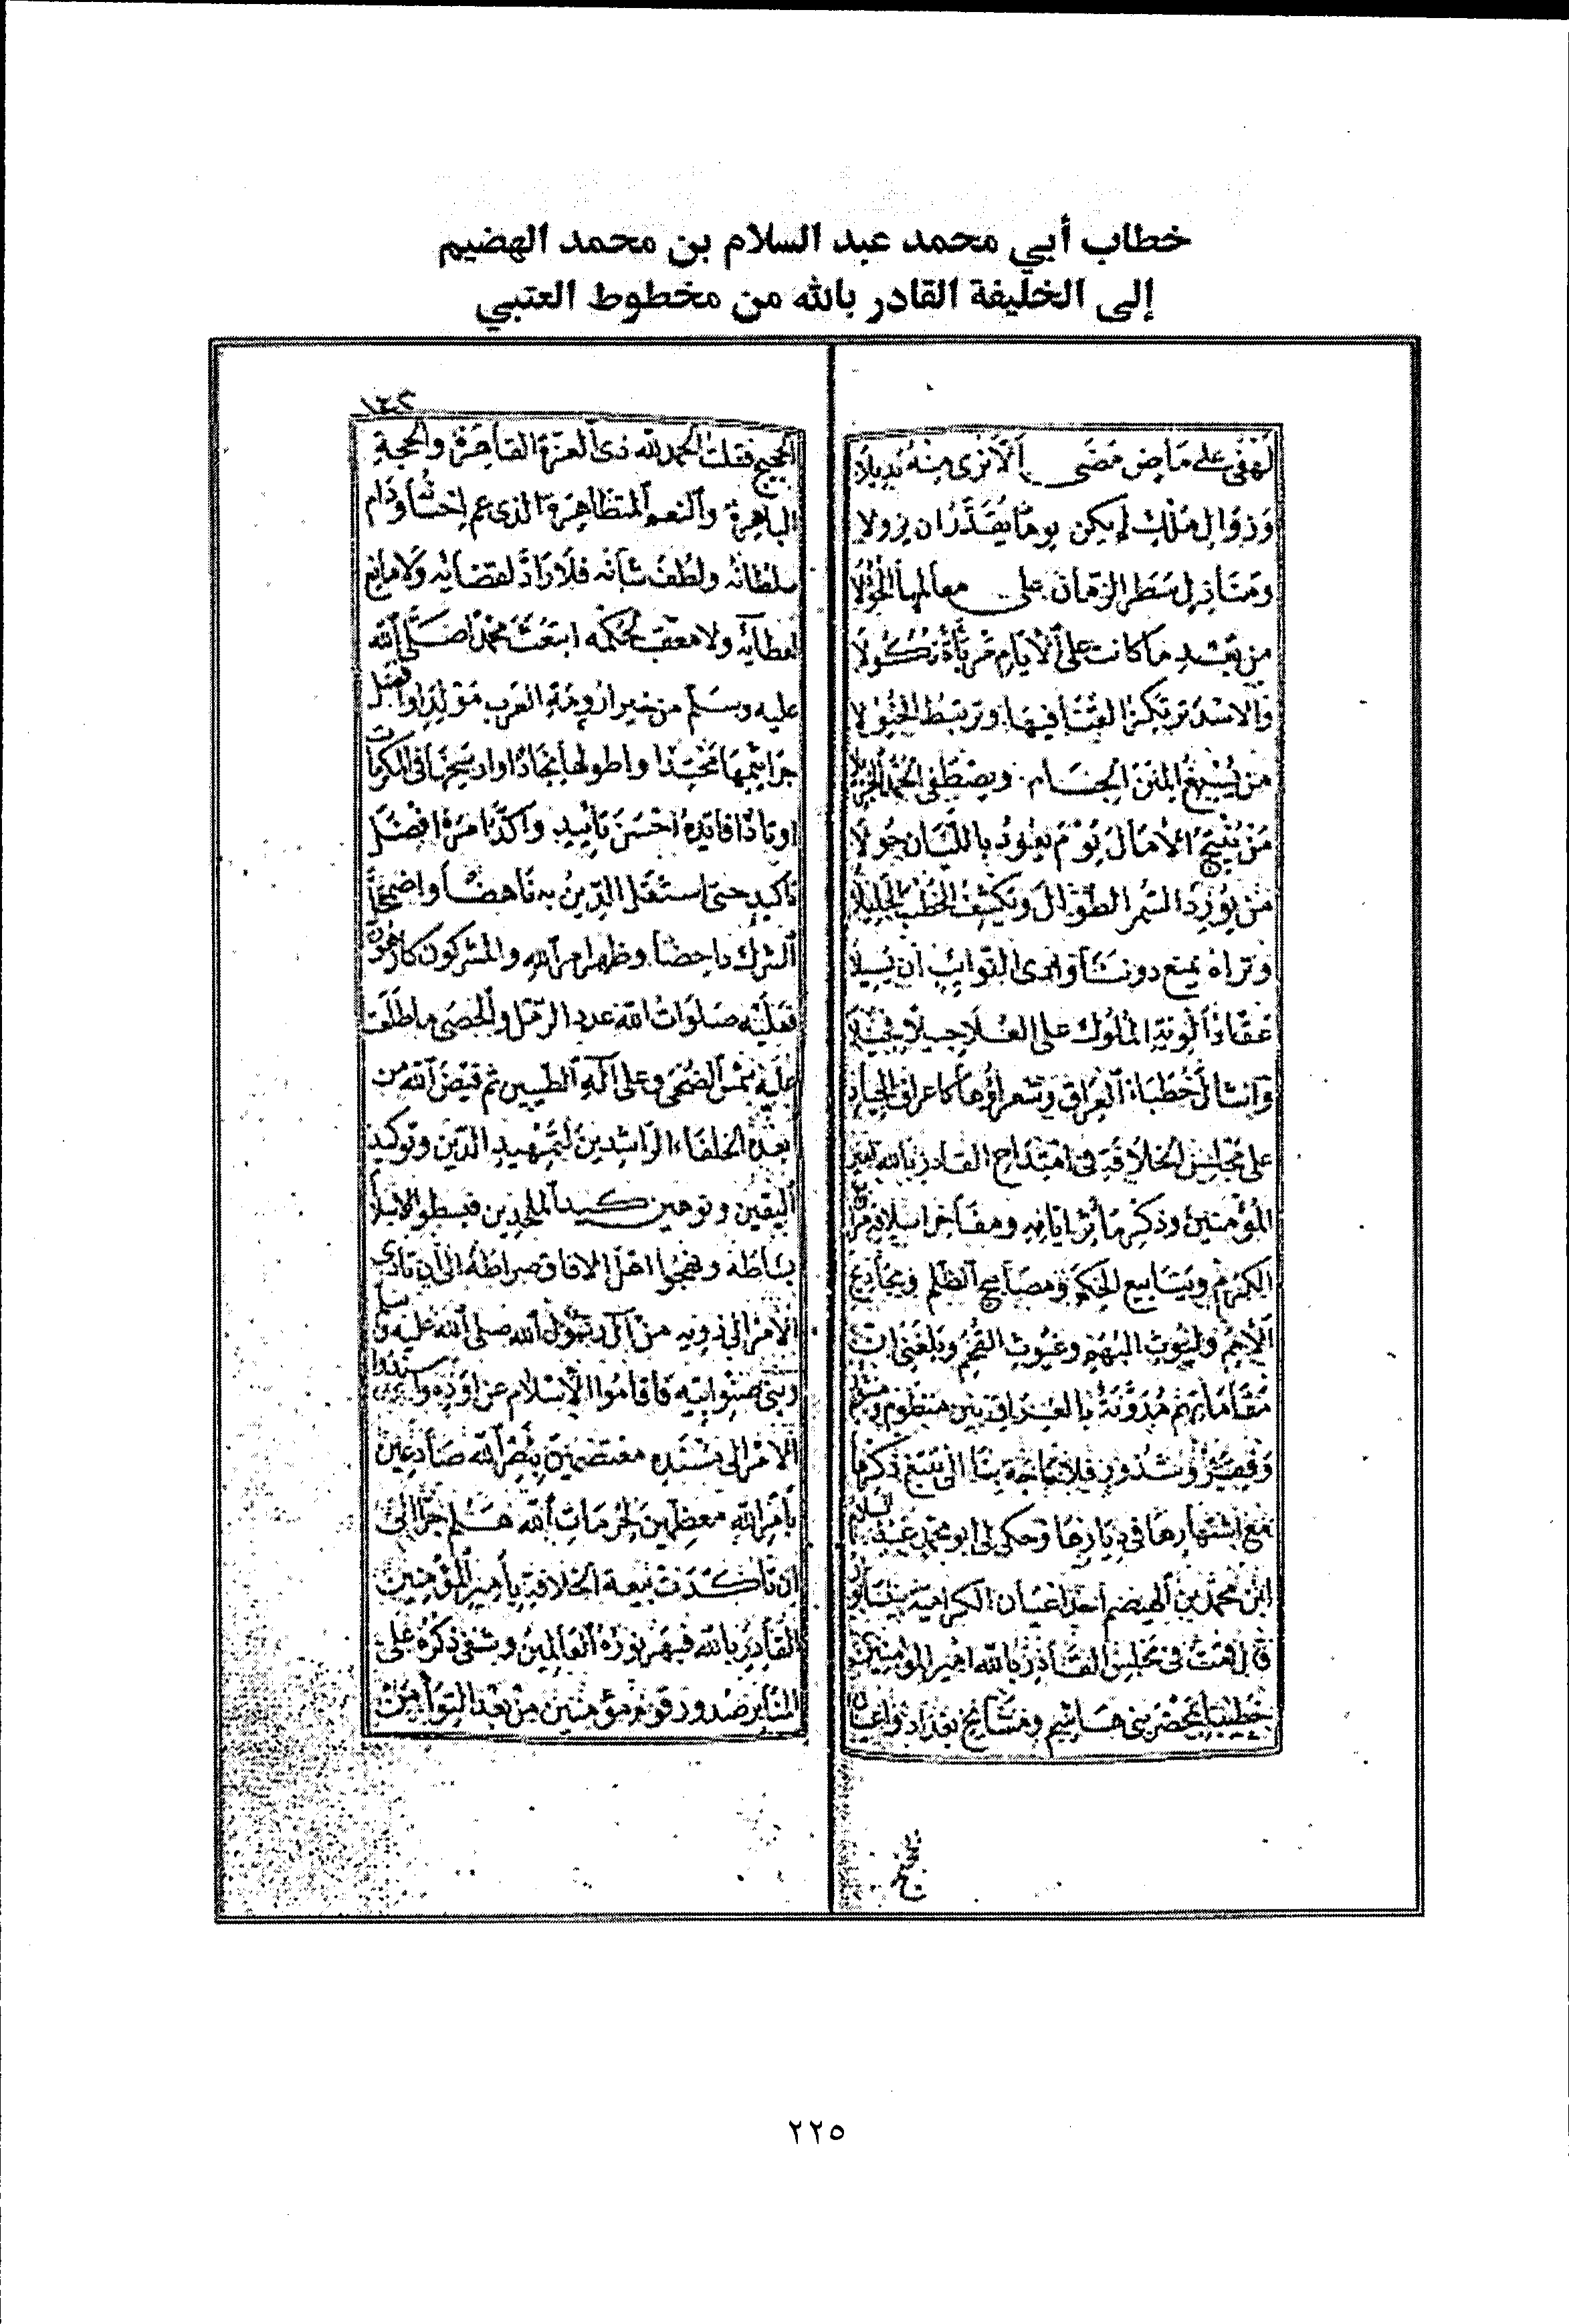 خطاب أبي محمد عبد السلام بن محمد الهضيم
إلى الخليفة القادر بالله من مخطوط العتبي
لهفي على ماض مضى ألا نرى منه بديلا
وزوال ملك لم يكن يوما يقدر ان يزولا
ومنازل سطر الزمان على معالمها
من بعد ما كانت على الايام
والاسد ترتكز القنا فيها وترتبط الخيولا
من يسبغ المنن الجسام ويصطفى الحمد
من ينتج الآمال يوم يعود بالليان حولا
من يورد السمر الطوال ويكشف الخطب الجليلا
وتراه يمنع دوننا وادى النوايب ان يسيلا
عقاد ألوية الملوك على العدا جيلا فجيلا
وانثال خطباء العراق وشعراؤها كأعراف الجياد
على مجلس الخلافة في امتداح القادر بالله امير
المؤمنين وذكر مآثر ايامه ومفاخر اسلافه من
الكرم وينابيع الحكم ومصابيح الظلم ومجاديح
الامم وليوث البهم وغيوث القحم وبلغني ان
مقاماتهم مدونة بالعراق بين منظوم ومنثور
وفصل وشذور فلا حاجة بنا الى تتبع ذكرها
مع اشتهارها في ديارها وحكى لى ابو محمد عبد السلام
ابن محمد بن الهيضم احد اعيان الكرامية بنيسابور
قال قمت في مجلس القادر بالله امير المؤمنين
خطيبا بمحضر بنى هاشم ومشايخ بغداد واعيان
١٤٢
الحجيج فقلت الحمد لله ذى العزة القاهرة والحجة
الباهرة والنعم المتظاهرة الذى عم احسانه ودام
سلطانه ولطف شانه فلا راد لقضائه ولا مانع
لعطائه ولا معقب لحكمه ابتعث محمدا صلى الله
عليه وسلم من خير ارومة العرب مولدا وافضل
جراثيمها محتدا واطولها نجادا وارسخها في المكرمات
اوتادا فايده احسن تأييد واكد امره افضل
تاكيد حتى استقل الدين به ناهضا واضحى
الشرك داحضا وظهر امر الله والمشركون كارهون
فعليه صلوات الله عدد الرمل والحصى ما طلعت
عليه شمس الضحى وعلى آله الطيبين ثم قيض الله من
بعده الخلفاء الراشدين لتمهيد الدين وتوكيد
اليقين وتوهين كيد الملحدين فبسطوا للاسلام
بساطه ونهجوا اهل الافاق صراطه الى ان تادى
الامر الى ذويه من آل رسول الله صلى الله عليه وسلم
وبنى صنو ابيه فاقاموا الاسلام عن اوده واسندوا
الامر الى سنده معتصمين بنصر الله صادعين
بأمر الله معظمين لحرمات الله هلم جرا الى
ان تأكدت بيعة الخلافة بامير المؤمنين
القادر بالله فبهر نوره العالمين وشفى ذكره على
المنابر صدور قوم مؤمنين من بعد
٢٢٥